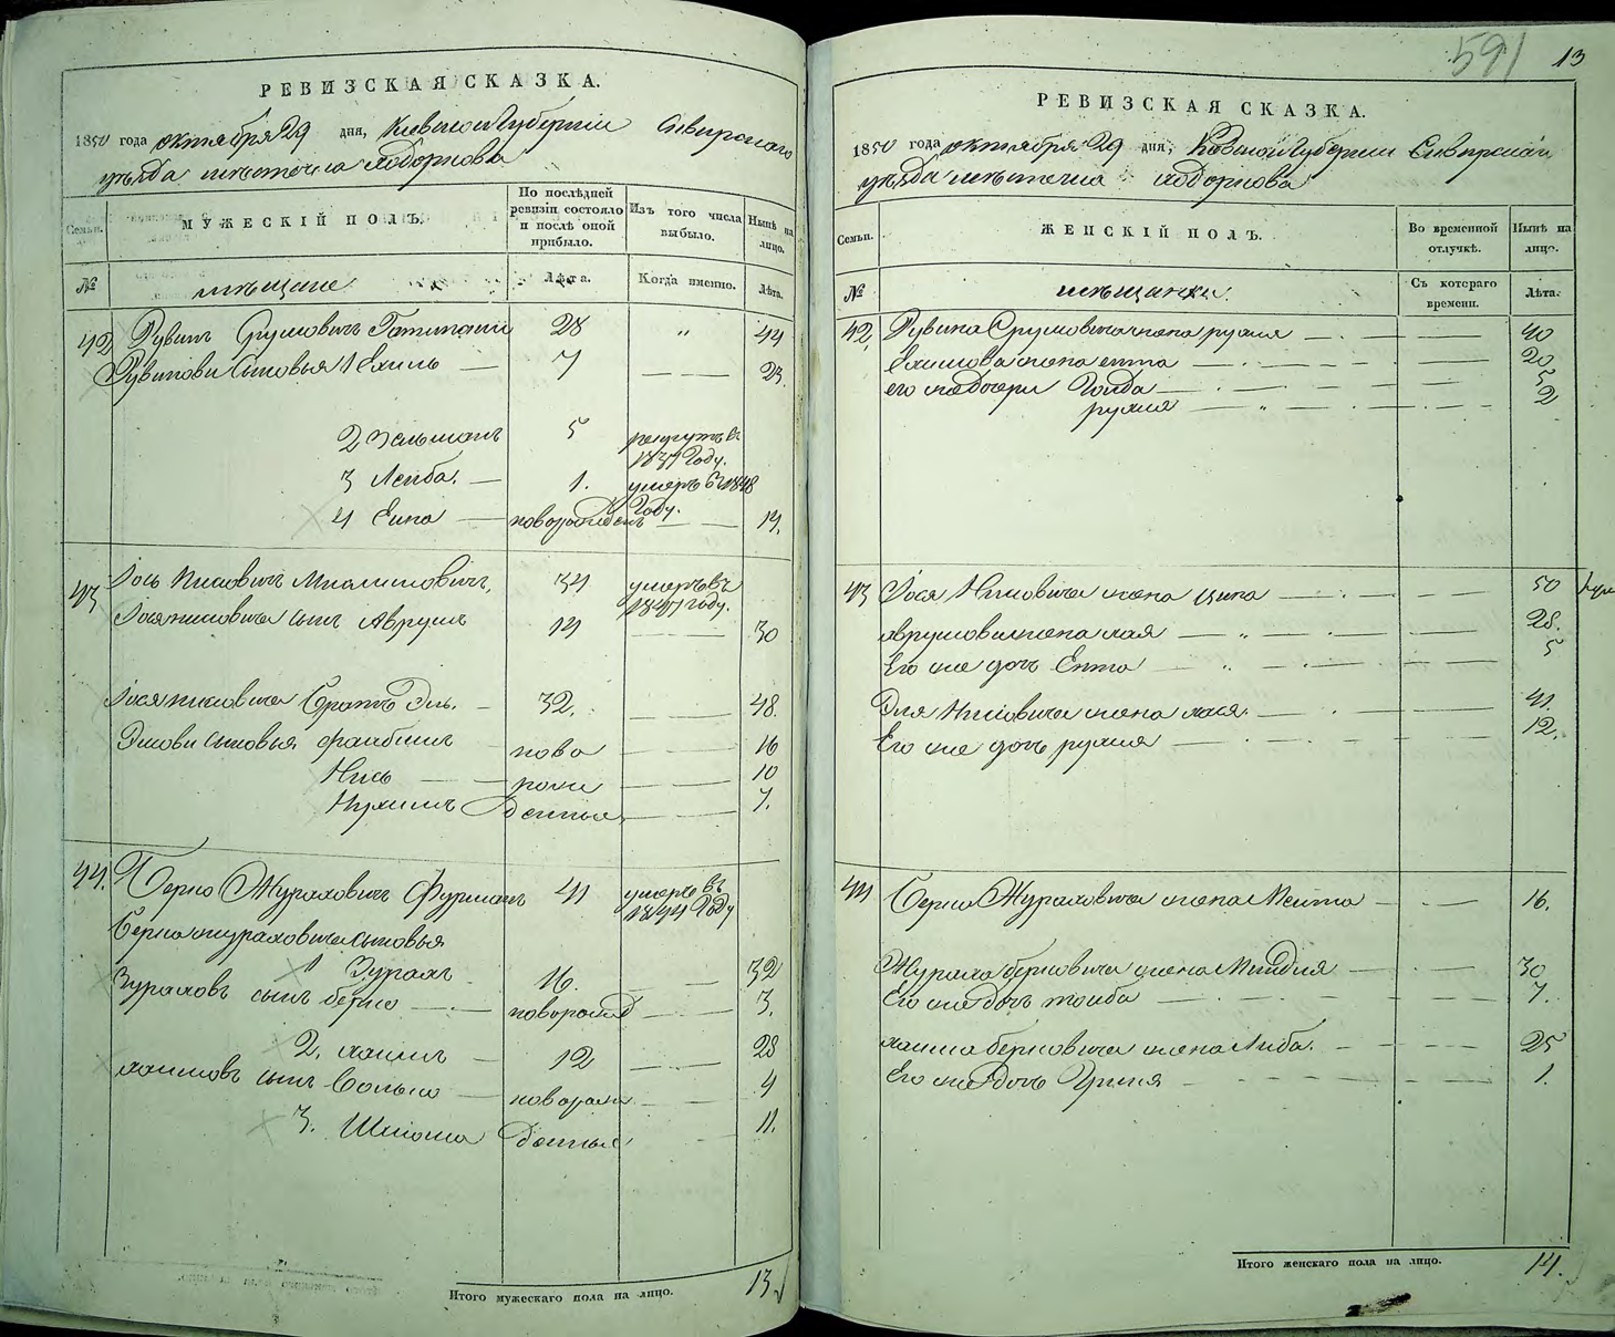 РЕВИЗСКАЯ СКАЗКА.
1850 года октября 29 дня, Киевской Губернии Сквирского
уѣзда мѣстечка Ходоркова
Семьи. МУЖЕСКІЙ ПОЛЪ. По послѣдней ревизіи состояло и послѣ оной прибыло. Изъ того числа выбыло. Нынѣ на лицо.
№ мѣщане Лѣта. Когда именно. Лѣта.
42 Рувинъ Срулиовичъ 28 " 44
Рувинови сыновья 1 Ехиль 7 23.
2 Зельманъ 5 рекрутъ въ
1837 Году.
3 Лейба. 1. умеръ въ 1848
Году.
4 Сина новорожденъ 14.
43 Іось Нисиовичъ 34 умеръ въ
1847 году.
Іося Нисиовича сынъ Аврумъ 14 30
Іося Нисиовича братъ Эль. 32. 48.
Элиови сыновья Файбишъ ново 16
Нись рож 10
Нухимъ денные 7.
44. Берко Журахович Фурманъ 41 умеръ въ
1844 Году
Берка Жураховича сыновья
1 Зурахъ 16. 32
Зураховъ сынъ Берко новорожд 3.
2. Хаимъ 12 28
Хаимовъ сынъ Волько новорож 4
3. Шлиома денные 11.
Итого мужескаго пола на лицо. 13
591 13
РЕВИЗСКАЯ СКАЗКА.
1850 года октября 29 дня, Киевской Губернии Сквирскаго
уѣзда мѣстечка Ходоркова
Семьи. ЖЕНСКІЙ ПОЛЪ. Во временной отлучкѣ. Нынѣ на лицо.
№ мѣщанки. Съ котораго времени. Лѣта.
42, Рувина Срулиовича жена Рухля 40
Ехилиова жена Ента 20
его же дочери Голда 5
Рухля 2
43 Іося Нисиовича жена Ципа 50
Аврумова жена Хая 28.
Его же дочь Ента 5
Эля Нисиовича жена Хася. 41.
Его же дочь Рухля 12.
44 Берка Жураховича жена Мейта 16.
Жураха Берковича жена Миндля 30
Его же дочь Тойба 7.
Хаима Берковича жена Либа. 25
Его же дочь 1.
Итого женскаго пола на лицо. 14.